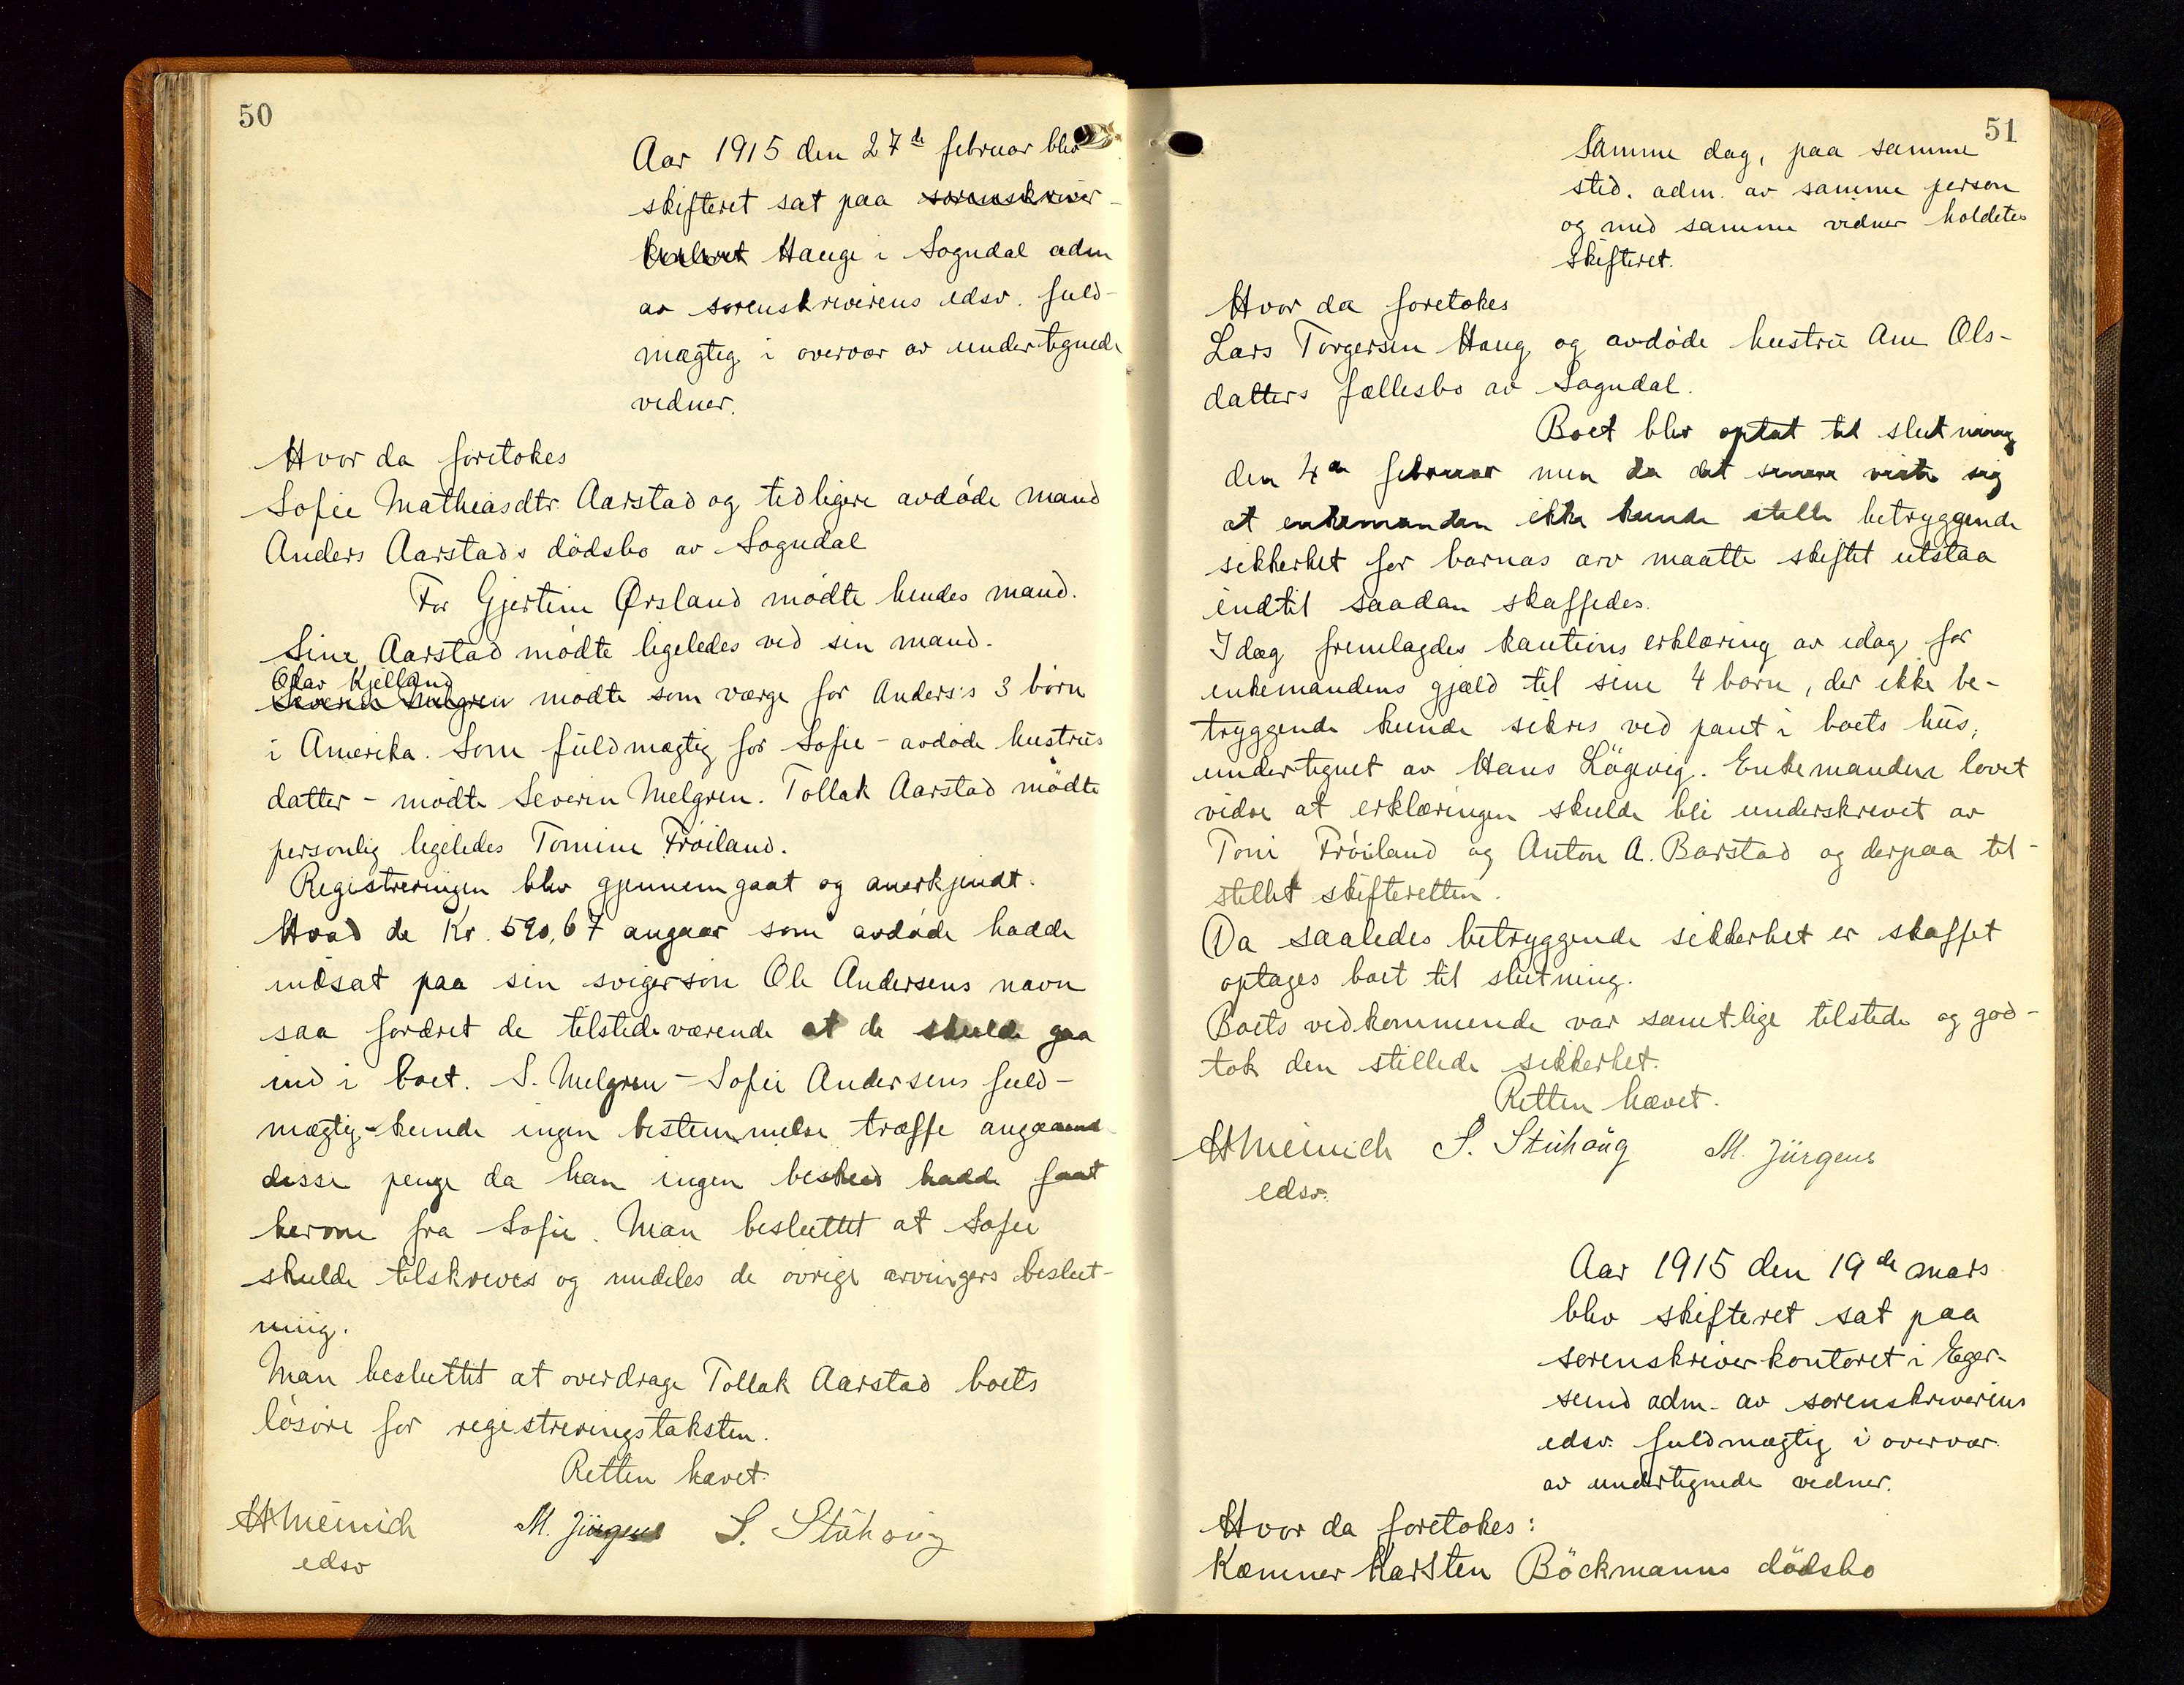 50
Aar 1915 den 27de februar blev
skifteret sat paa sorenskriver-
kontoret Hauge i Sogndal adm
av sorenskriverens edsv. fuld-
mægtig i overvær av undertegnede
vidner.
Hvor da foretokes
Sofie Mathiasdtr. Aarstad og tidligere avdöde mand
Anders Aarstads dödsbo av Sogndal
For Gjertine Ørsland mödte hendes mand.
Sine Aarstad mödte ligeledes ved sin mand.
Olav Kjelland
Severin Melgren mödte som værge for Anders's 3 börn
i Amerika. Som fuldmægtig for Sofie - avdöde hustrus
datter - mödte Severin Melgren. Tollak Aarstad mödte
personlig ligeledes Tomine Fröiland.
Registreringen blev gjennemgaat og anerkjendt.
Hvad de Kr. 590,67 angaar som avdöde hadde
indsat paa sin svigersön Ole Andersens navn
saa fordret de tilstedeværende at de skulde gaa
ind i boet. S. Melgren - Sofie Andersens fuld-
mægtig - kunde ingen bestemmelse træffe angaaende
disse penge da han ingen besked hadde faat
herom fra Sofie. Man besluttet at Sofie
skulde tilskrives og meddeles de övrige arvingers beslut-
ning.
Man besluttet at overdrage Tollak Aarstad boets
lösöre for registreringstaksten.
Retten hævet.
HMeinich M. Jürgens S. Stuhaug
edsv
51
Samme dag, paa samme
sted. adm. av samme person
og med samme vidner holdtes
skifteret.
Hvor da foretokes
Lars Torgersen Haug og avdöde hustru Ane Ols-
datters fællesbo av Sogndal.
Boet blev optat til slutning
den 4de februar men da det senere viste sig
at enkemanden ikke kunde stille betryggende
sikkerhet for barnas arv maatte skiftet utstaa
indtil saadan skaffedes.
Idag fremlagdes kautions erklæring av idag for
enkemandens gjæld til sine 4 barn, der ikke be-
tryggende kunde sikres ved pant i boets hus,
undertegnet av Hans Lögevig. Enkemanden lovet
vidre at erklæringen skulde bli underskrevet av
Toni Fröiland og Anton A. Barstad og derpaa til-
stillet skifteretten.
Da saaledes betryggende sikkerhet er skaffet
optages boet til slutning.
Boets vedkommende var samtlige tilstede og god-
tok den stillede sikkerhet.
Retten hævet.
HMeinich S. Stuhaug M. Jürgens
edsv.
Aar 1915 den 19de mars
blev skifteret sat paa
sorenskriverkontoret i Eger-
sund adm. av sorenskriverens
edsv. fuldmægtig i overvær
av undertegnede vidner.
Hvor da foretokes:
Kæmner Karsten Böckmanns dödsbo